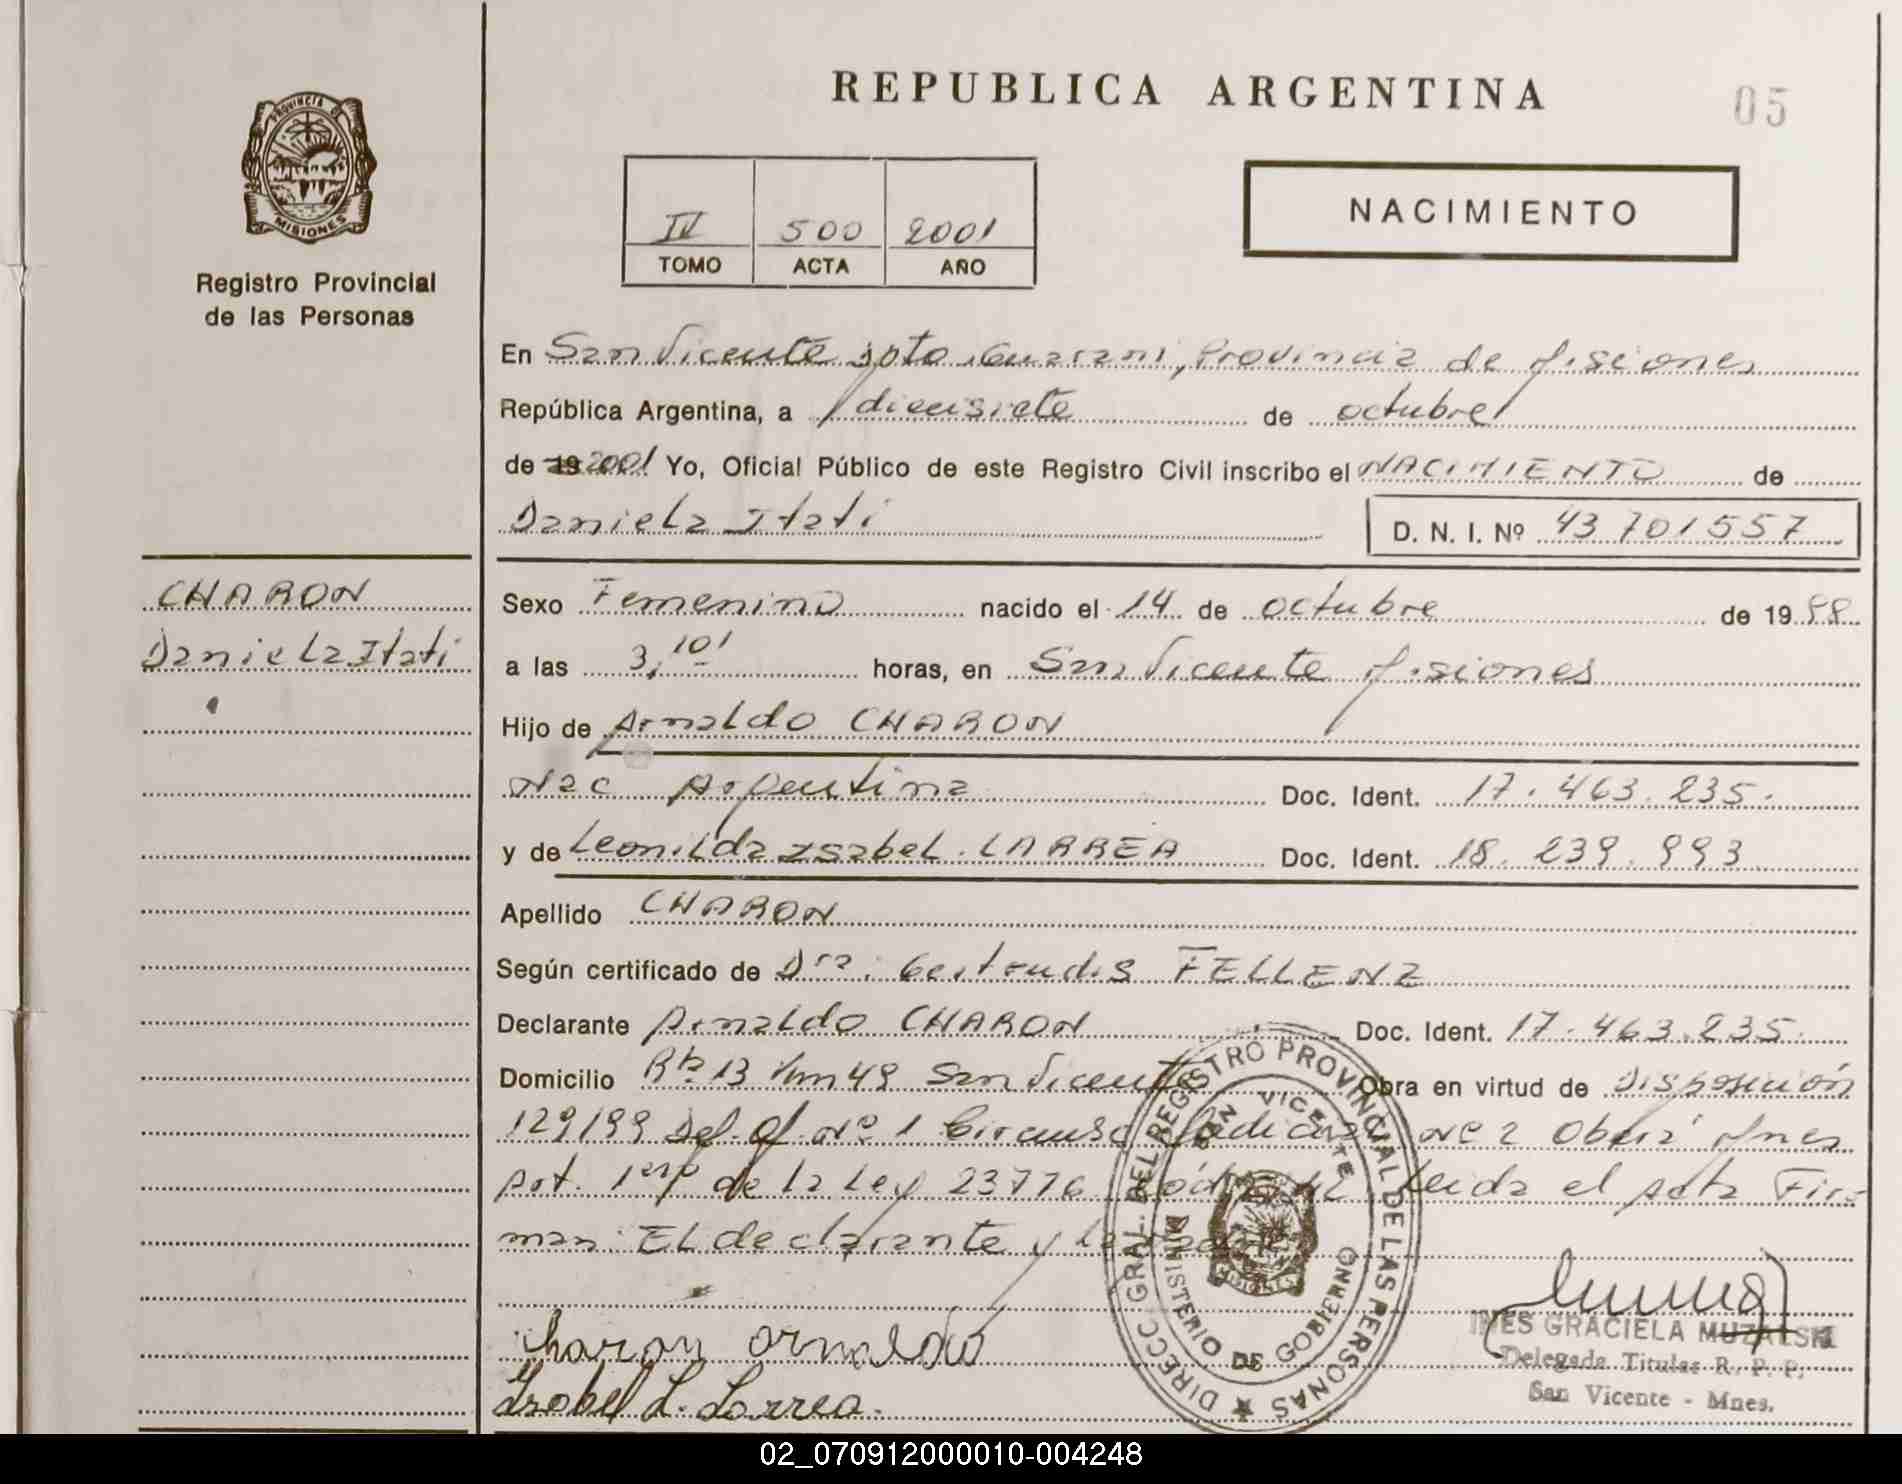 REPUBLICA ARGENTINA
05
PROVINCIA DE
MISIONES
Registro Provincial
de las Personas
IV 500 2001
TOMO ACTA AÑO
NACIMIENTO
En San Vicente Dpto. Guarani, Provincia de Misiones
República Argentina, a diecisiete de octubre
de 19 2001 Yo, Oficial Público de este Registro Civil inscribo el NACIMIENTO de
Daniela Itati
D. N. I. Nº 43701557
CHARON
Daniela Itati
Sexo Femenino nacido el 14 de octubre de 19
a las 3,10 horas, en San Vicente Misiones
Hijo de Arnaldo CHARON
Nac Argentina Doc. Ident. 17.463.235.
y de Leonilda Isabel LARREA Doc. Ident. 18.239.993
Apellido CHARON
Según certificado de Dra. Gertrudis FELLENZ
Declarante Arnaldo CHARON Doc. Ident. 17.463.235.
Domicilio Rta 13 Km 48 San Vicente Obra en virtud de Disposición
129/99 Def. Of. Nº 1 Circunsc. Judicial Nº 2 Oberá Mnes
Art. 1º de la Ley 23776 Leida el Acta Fir
man: El declarante y la
Charon Arnaldo
Isabel L. Larrea.
DIRECC. GRAL. DEL REGISTRO PROVINCIAL DE LAS PERSONAS
SAN VICENTE
MINISTERIO DE GOBIERNO
MISIONES
INES GRACIELA MUZALSKI
Delegada Titular R. P. P.
San Vicente - Mnes.
02_070912000010-004248